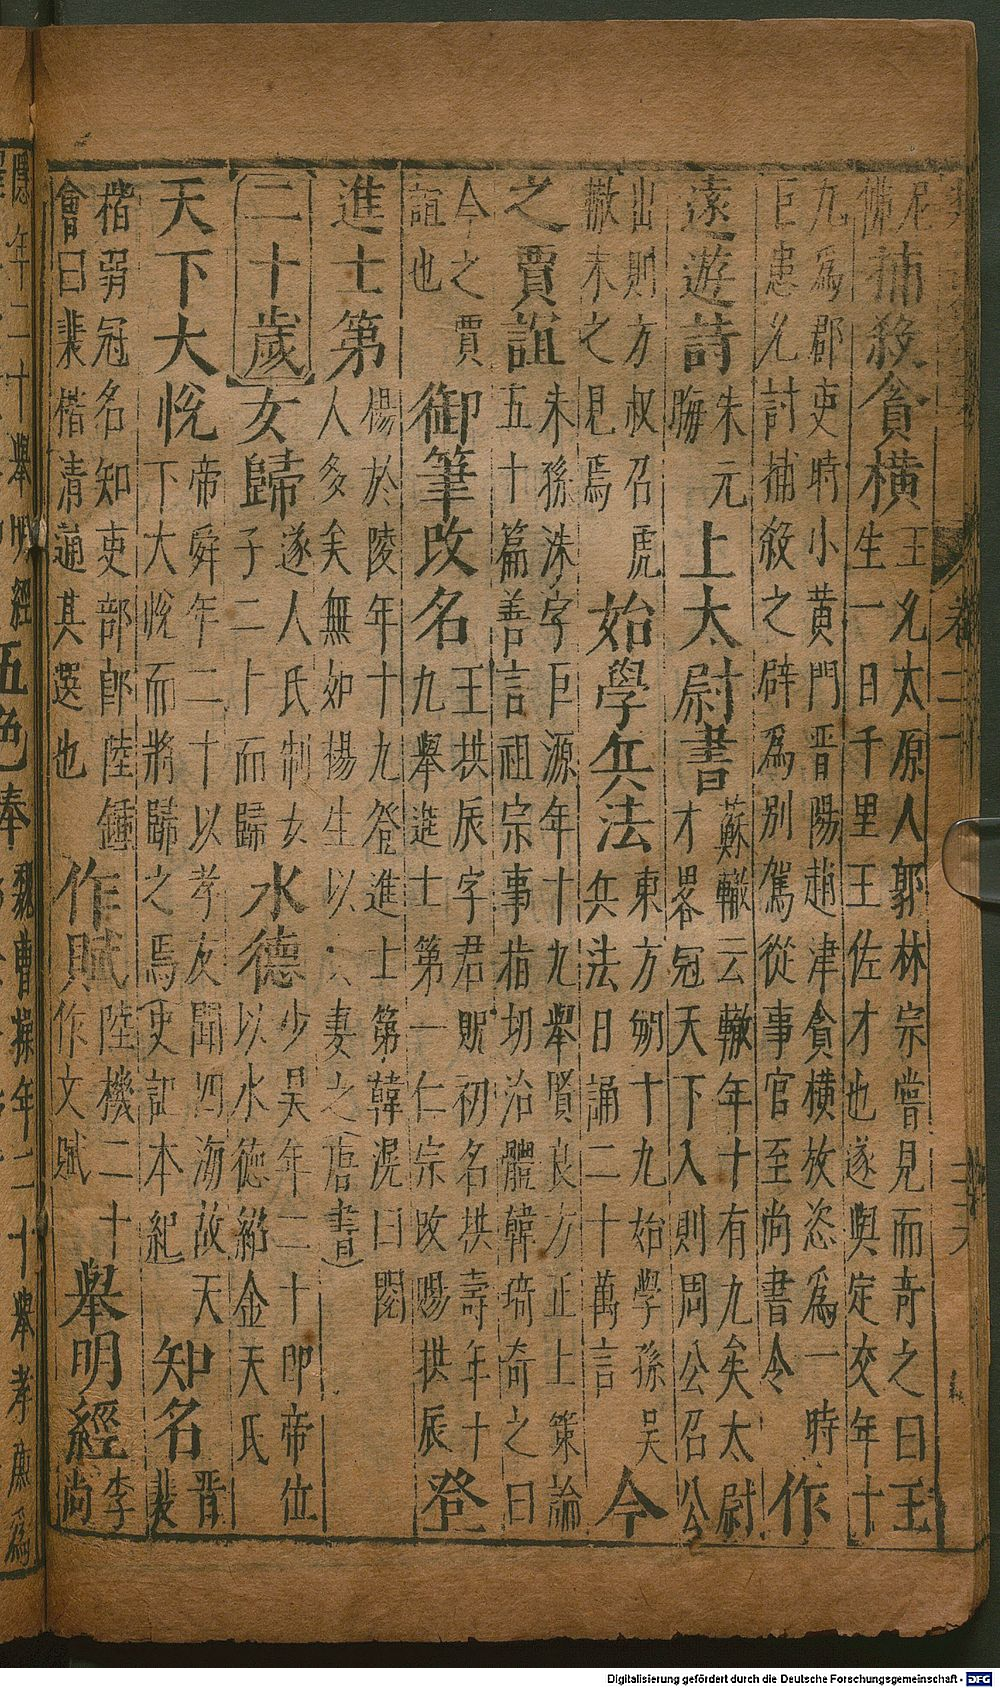 尼
佛
捕殺貪橫
王允太原人郭林宗嘗見而奇之曰王
生一日千里王佐才也遂與定交年十
九為郡吏時小黃門晋陽趙津貪橫放恣為一時
巨患允討捕殺之辟為別駕從事官至尚書令
作
遠遊詩
朱元
晦
上太尉書
蘇轍云轍年十有九矣太尉
才畧冠天下入則周公召公
出則方叔召虎
轍未之見焉
始學兵法
東方朔十九始學孫吳
兵法日誦二十萬言
今
之賈誼
朱孫洙字巨源年十九舉賢良方正上策論
五十篇善言祖宗事指切治體韓琦奇之曰
今之賈
誼也
御筆改名
王拱辰字君貺初名拱壽年十
九舉進士第一仁宗改賜拱辰
登
進士第
楊於陵年十九登進士第韓滉曰閱
人多矣無如楊生以妻之(唐書)
二十歲
女歸
遂人氏制女
子二十而歸
水德
少昊年二十即帝位
以水德紹金天氏
天下大悅
帝舜年二十以孝友聞四海故天
下大悅而將歸之焉史記本紀
知名
晋
裴
楷弱冠名知吏部郎陸鍾
會曰裴楷清通其選也
作賦
陸機二十
作文賦
舉明經
李
尚
年二十舉明經
五色棒
魏曹操年二十舉孝廉為
Digitalisierung gefördert durch die Deutsche Forschungsgemeinschaft - DFG